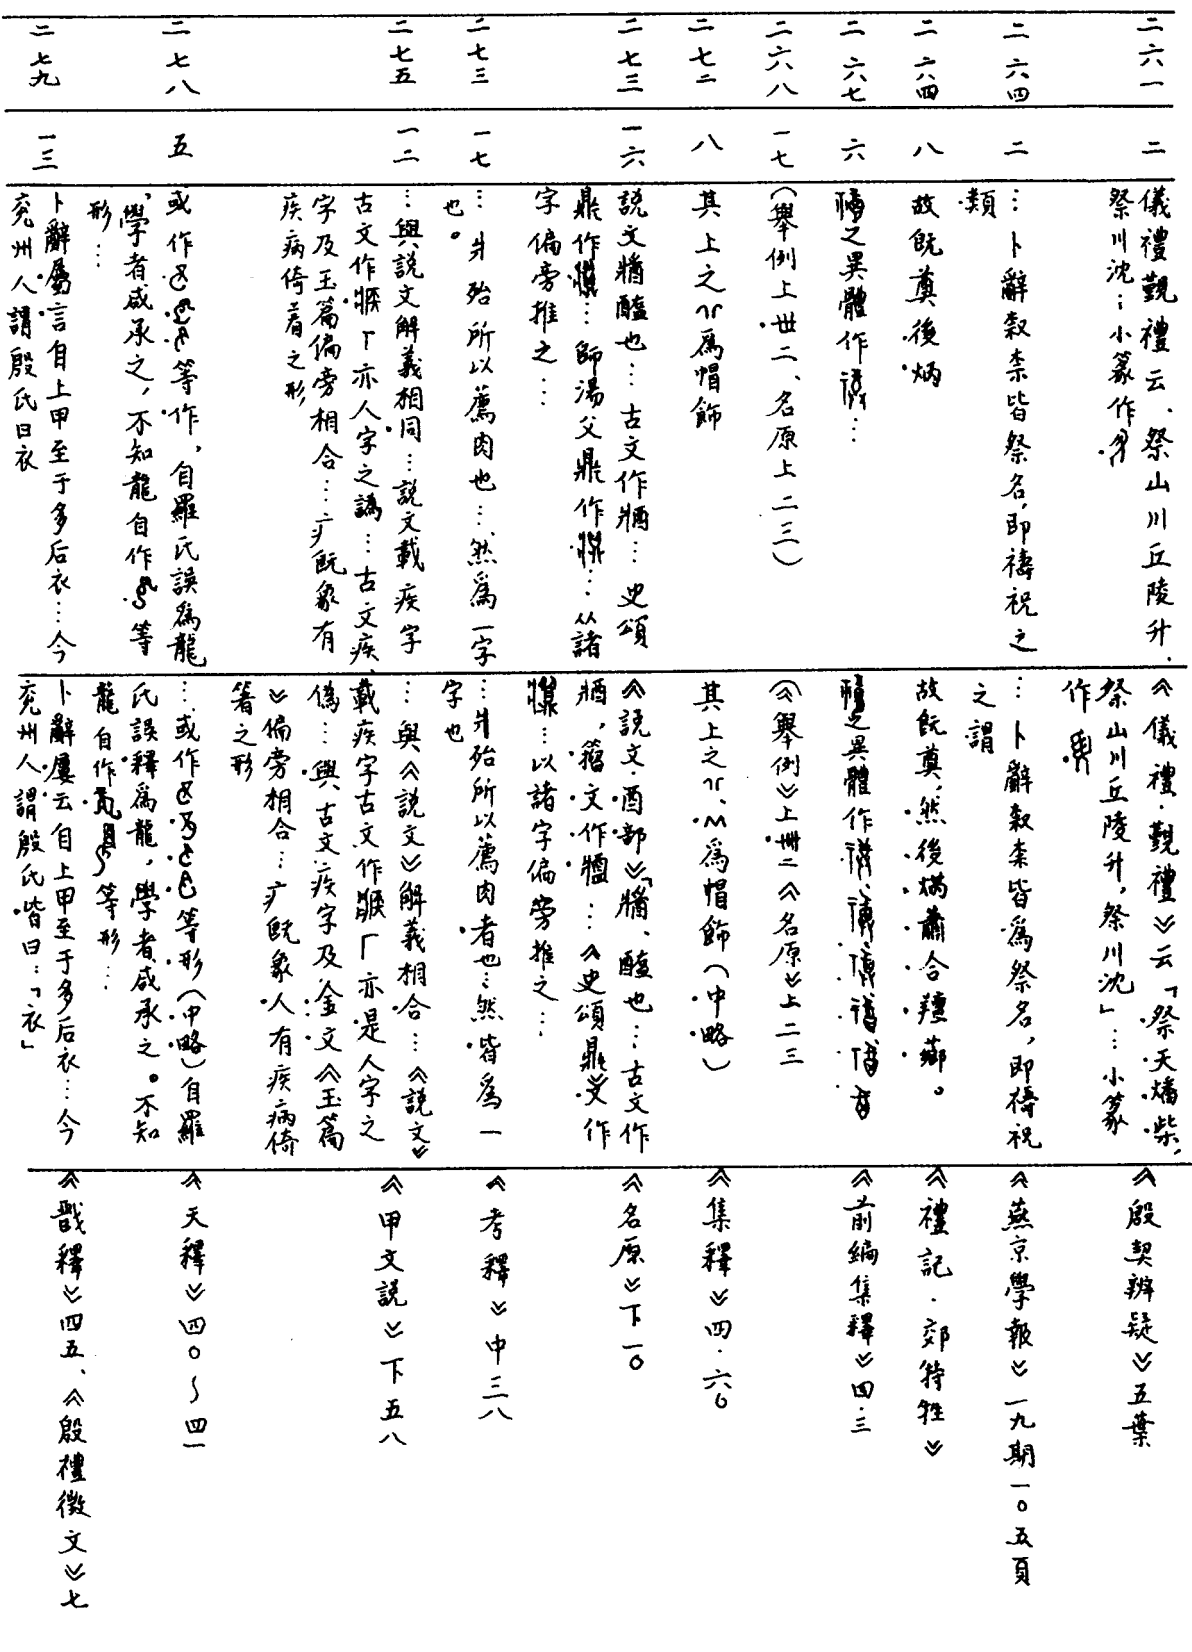 二六一
二
儀禮覲禮云、祭山川丘陵升.
祭川沈…小篆作
《儀禮·覲禮》云「祭天燔柴,
祭山川丘陵升,祭川沈」…小篆
作
《殷契辨疑》五葉
二六四
二
…卜辭𣪊柰皆祭名,即禱祝之
類
…卜辭𣪊柰皆爲祭名,即禱祝
之謂
《燕京學報》一九期一〇五頁
二六四
八
故既奠後焫
故既奠,然後焫蕭合羶薌。
《禮記·郊特牲》
二六七
六
之異體作…
之異體作
《前編集釋》四·三
二六八
一七
(舉例上卌二、名原上二三)
(《舉例》上卌二《名原》上二三
二七二
八
其上之爲帽飾
其上之、爲帽飾(中略)
《集釋》四·六〇
二七三
一六
説文牆醢也…古文作牆…史頌
鼎作…師湯父鼎作…从諸
字偏旁推之…
《説文·酉部》「牆、醢也…古文作
,籀文作…《史頌鼎》文作
…以諸字偏旁推之…
《名原》下一〇
二七三
一七
…爿殆所以薦肉也…然爲一字
也。
…爿殆所以薦肉者也…然皆爲一
字也
《考釋》中三八
二七五
一二
…與説文解義相同…説文載疾字
古文作「亦人字之譌…古文疾
字及玉篇偏旁相合…疒既象有
疾病倚着之形
…與《説文》解義相合…《説文》
載疾字古文作「亦是人字之
僞…與古文疾字及金文《玉篇
》偏旁相合…疒既象人有疾病倚
箸之形
《甲文説》下五八
二七八
五
或作等作,自羅氏誤爲龍
,學者咸承之,不知龍自作等
形…
…或作等形(中略)自羅
氏誤釋爲龍,學者咸承之。不知
龍自作等形…
《天釋》四〇~四一
二七九
一三
卜辭屬言自上甲至于多后衣…今
兖州人謂殷氏曰衣
卜辭屢云自上甲至于多后衣…今
兖州人謂殷氏皆曰:「衣」
《戬釋》四五、《殷禮徵文》七